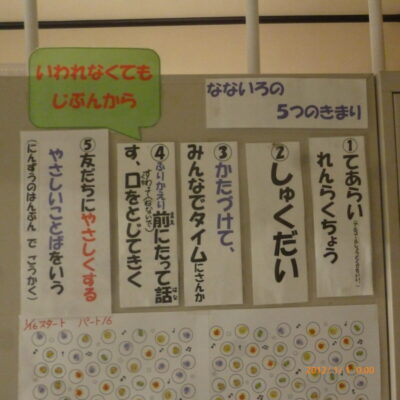 いわれなくても
じぶんから
なないろの
5つのきまり
①てあらい
れんらくちょう
②しゅくだい
③かたづけて、
みんなでタイムにさんか
④ふりかえり前にたって話
す、口をとじてきく
⑤友だちにやさしくする
やさしいことばをいう
(にんずうのはんぶん で ごうかく)
1/16スタート パート16